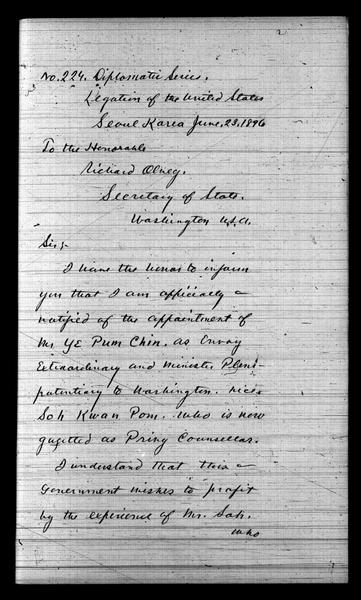 No. 224. Diplomatic Series.
Legation of the United States
Seoul Korea June, 23, 1896
To the Honorable
Richard Olney.
Secretary of State.
Washington U.S.A.
Sir;-
I have the honor to inform
you that I am officially
notified of the appointment of
Mr YE Pum Chin. as Envoy
Extraordinary and Minister Pleni-
potentiary to Washington. vice
Soh Kwan Pom. who is now
gazetted as Privy Counsellor.
I understand that this
Government wishes to profit
by the experience of Mr. Soh.
who